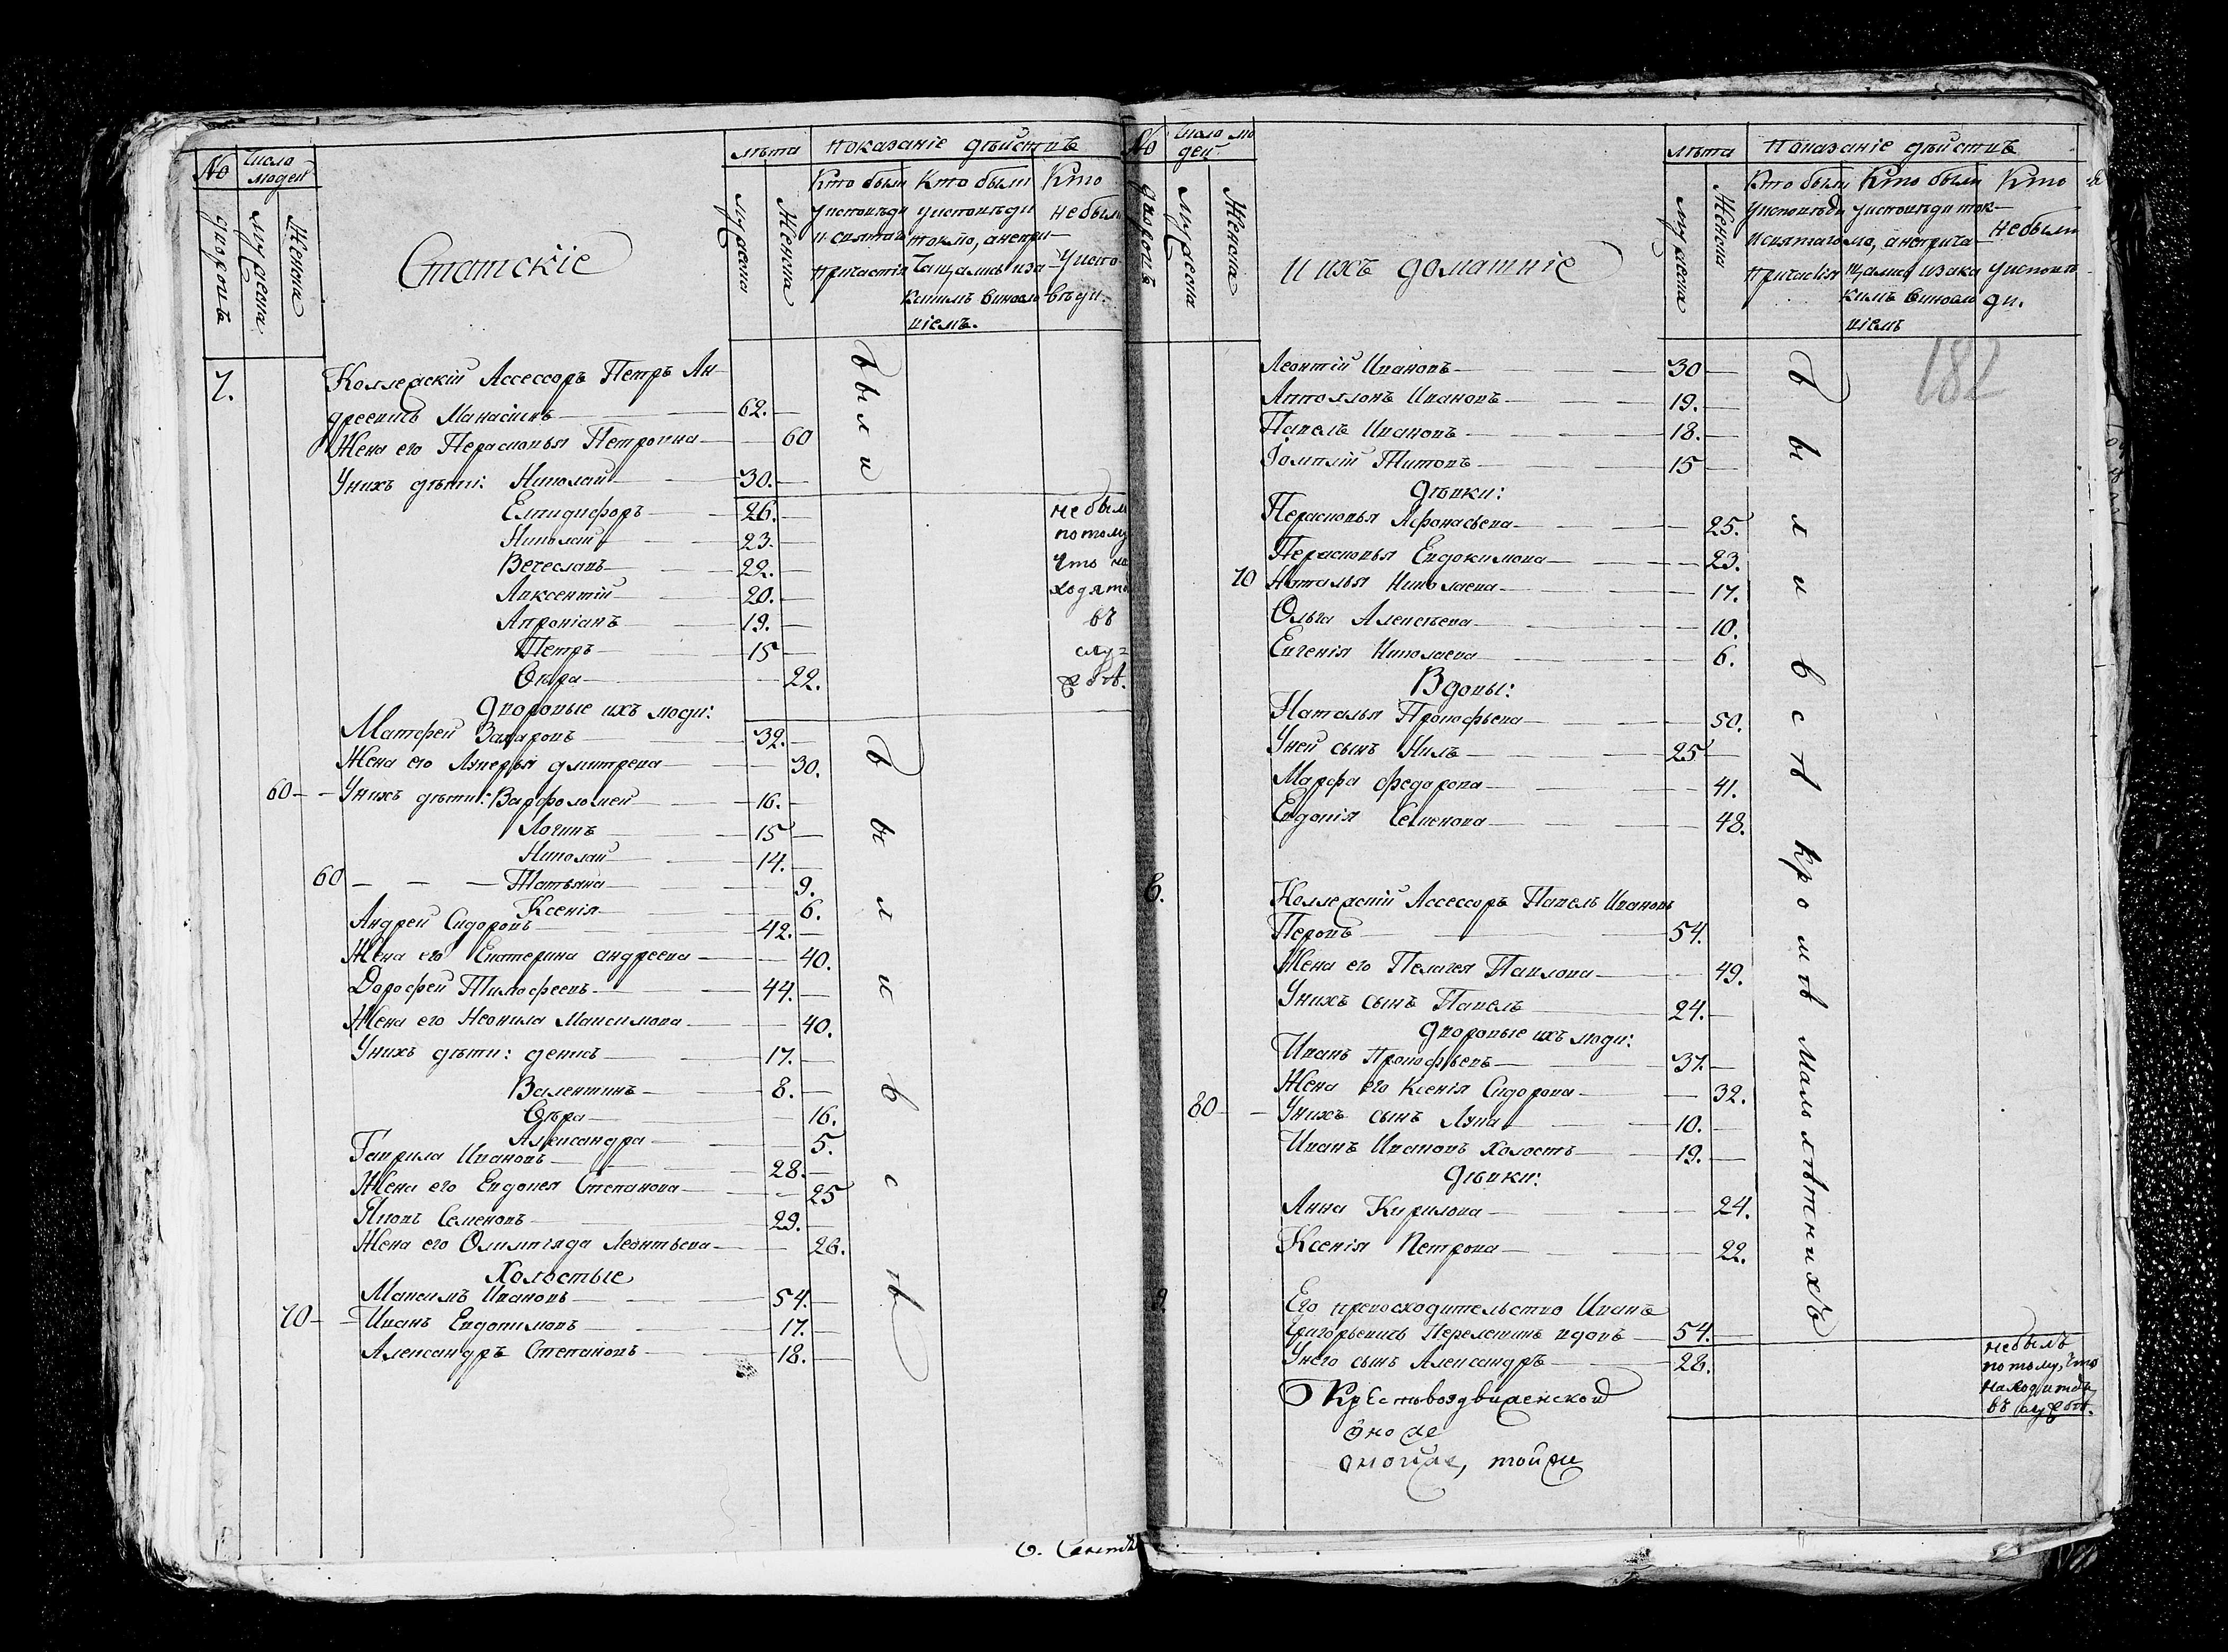 No
Число людей
лѣта
показаніе дѣйствъ
дворовъ
мужеска
Женска
Статскіе
мужеска
Женска
Кто были
у исповѣди
и святаго
причастія
Кто были
у исповѣди
токмо, а непри-
чащались и за
какимъ виносло
віемъ.
Кто
не были
у испо-
вѣди.
7.
Коллежскій Ассессоръ Петръ Ан
дреевичь Манасеинъ 62.
Жена его Перасковья Петровна 60
У нихъ дѣти: Николай 30.
Елпидифоръ 26.
Николай 23.
Вечеславъ 22.
Авксентій 20.
Апроніанъ 19.
Петръ 15
Ѳёкра 22.
были
не были
потому
что на
ходятся
въ
служ
бѣ.
Дворовые ихъ люди:
Матфей Захаровъ 32.
Жена его Лукерья Дмитрева 30.
60 У нихъ дѣти: Варфоломей 16.
Логинъ 15
Николай 14.
60 Татьяна 9.
Ксенія 6.
Андрей Сидоровъ 42.
Жена его Екатерина Андреева 40.
Дорофей Тимофеевъ 44.
Жена его Неонила Максимова 40.
У нихъ дѣти: Денисъ 17.
Валентинъ 8.
Ѳёкра 16.
Александра 5.
Гаврила Ивановъ 28.
Жена его Евдокея Степанова 25
Яковъ Семеновъ 29.
Жена его Олимпіяда Леонтьева 26.
Холостые
Максимъ Ивановъ 54.
70 Иванъ Евдокимовъ 17.
Александръ Степановъ 18.
были всѣ
No
Число лю
дей
дворовъ
мужеска
Женска
и ихъ домашніе
лѣта
показаніе дѣйствъ
мужеска
Женска
Кто были
у исповѣди
и святаго
причастія
Кто были
у исповѣди ток-
мо, а неприча-
щались и за ка
кимъ виносло
віемъ
Кто
не были
у исповѣ
ди.
182
Леонтій Ивановъ 30
Апполлонъ Ивановъ 19.
Павелъ Ивановъ 18.
Титовъ 15
Дѣвки:
Перасковья Афонасьева 25.
Перасковья Евдокимова 23.
70 Наталья Николаева 17.
Ольга Алексѣева 10.
Евгенія Николаева 6.
Вдовы:
Наталья Прокофьева 50.
У ней сынъ Нилъ 25
Марфа Федорова 41.
Евдокія Семенова 48.
8.
Коллежскій Ассессоръ Павелъ Ивановъ
Перовъ 54.
Жена его Пелагея Павлова 49.
У нихъ сынъ Павелъ 24.
Дворовые ихъ люди:
Иванъ Прокофьевъ 37.
Жена его Ксенія Сидорова 32.
80 У нихъ сынъ Лука 10.
Иванъ Ивановъ холостъ 19.
Дѣвки:
Анна Кирилова 24.
Ксенія Петрова 22.
были всѣ кромѣ малолѣтнихъ
9.
Его превосходительство Иванъ
Григорьевичь Перелешинъ вдовъ 54.
У него сынъ Александръ 28.
не былъ
потому, что
находится
въ службѣ.
Крестовоздвиженской
онойже, тойже